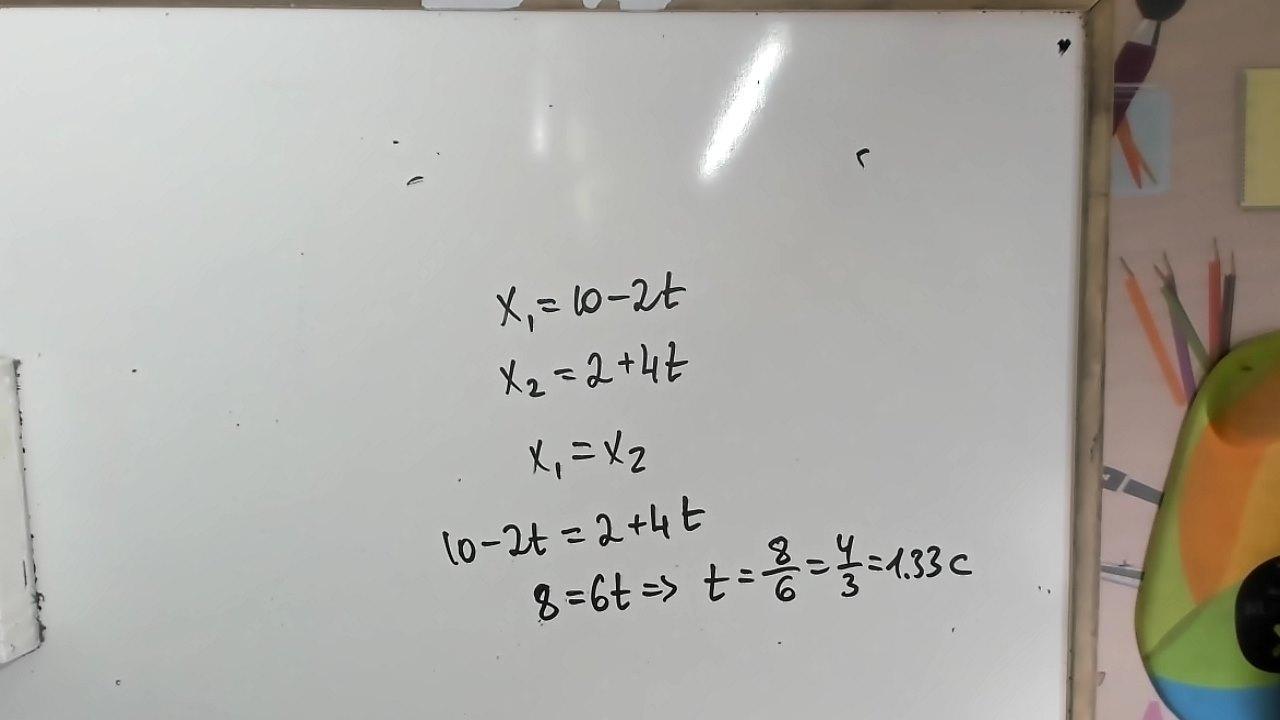 x₁ = 10 - 2t
x₂ = 2 + 4t
x₁ = x₂
10 - 2t = 2 + 4t
8 = 6t => t = 8/6 = 4/3 = 1.33 c